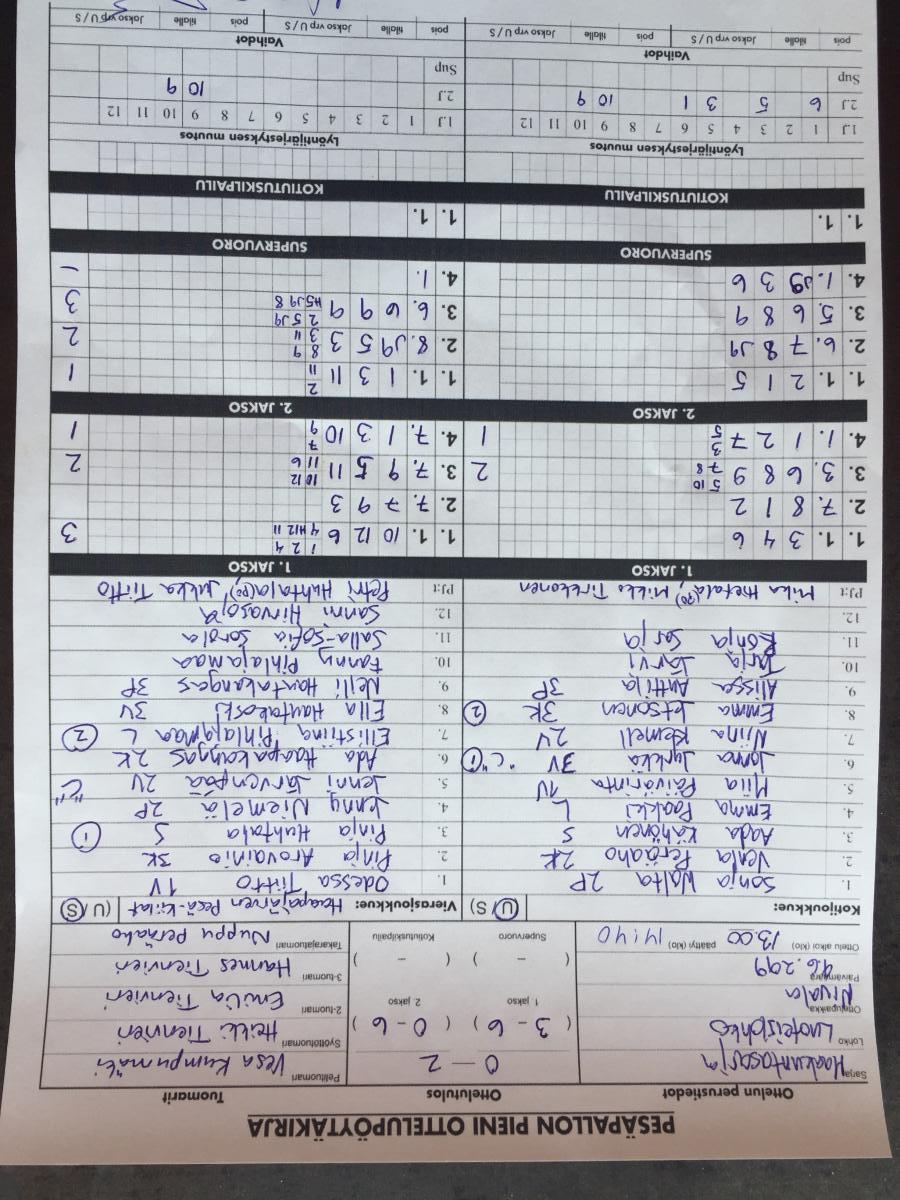 PESÄPALLON PIENI OTTELUPÖYTÄKIRJA
Ottelun perustiedot
Ottelutulos
Tuomarit
Sarja
Lohko
Ottelupaikka Nivala
Päivämäärä
Ottelu alkoi (klo) 13.00 päättyi (klo) 14:40
0 - 2
( 3 - 6 ) ( 0 - 6 )
1. jakso 2. jakso
( - ) ( - )
Supervuoro Kotiutuskilpailu
Pelituomari Vesa Kumpumäki
Syöttötuomari Heikki Tienvieri
2-tuomari Emilia Tienvieri
3-tuomari Hannes Tienvieri
Takarajatuomari Nuppu Peräaho
Kotijoukkue: (U / S)
1. Sonja Walta 2P
2. Venla Peräaho 2K
3. Aada Kähönen S
4. Emma Paakki L
5. Miia Päivärinta 1V
6. Jonna Jyrkkä 3V "C" 1
7. Niina Kemell 2V
8. Emma Ketsonen 3K 2
9. Alissa Anttila 3P
10. Tarja Järvi
11. Ronja Sarja
12.
PJ:t Mika Hietala(PO), Mikko Tirkkonen
Vierasjoukkue: Haapajärven Pesä-Kiilat (U / S)
1. Odessa Tiitto 1V
2. Pinja Arovainio 3K
3. Pinja Huhtala S 1
4. Jenny Niemelä 2P
5. Jenni Järvenpää 2V "C"
6. Ada Haapakangas 2K
7. Ellistiina Pihlajamaa L 2
8. Ella Hautakoski 3V
9. Nelli Hautakangas 3P
10. Fanny Pihlajamaa
11. Salla-Sofia Sorola
12. Sanni Hirvasoja
PJ:t Petri Huhtala(PO), Jukka Tiitto
1. JAKSO
1. 1. 3 4 6
2. 7. 8 1 2
3. 3. 6 8 9 5 10 7 8 2
4. 1. 1 2 7 3 5 1
1. JAKSO
1. 1. 10 12 6 1 2 4 4 H12 11 3
2. 7. 7 9 3
3. 7. 9 5 11 10 12 11 6 2
4. 7. 1 3 10 7 9 1
2. JAKSO
1. 1. 2 1 5
2. 6. 7 8 J9
3. 5. 6 8 9
4. 1. J9 3 6
2. JAKSO
1. 1. 1 3 11 2 11 1
2. 8. J9 5 3 8 9 3 11 2
3. 6. 6 9 9 2 5 J9 H5 J9 8 3
4. 1. -
SUPERVUORO
1. 1.
SUPERVUORO
1. 1.
KOTIUTUSKILPAILU
KOTIUTUSKILPAILU
Lyöntijärjestyksen muutos
1.J 1 2 3 4 5 6 7 8 9 10 11 12
2.J 6 5 3 1 10 9
Sup
Lyöntijärjestyksen muutos
1.J 1 2 3 4 5 6 7 8 9 10 11 12
2.J 10 9
Sup
Vaihdot
pois tilalle Jakso vrp U / S pois tilalle Jakso vrp U / S
Vaihdot
pois tilalle Jakso vrp U / S pois tilalle Jakso vrp U / S